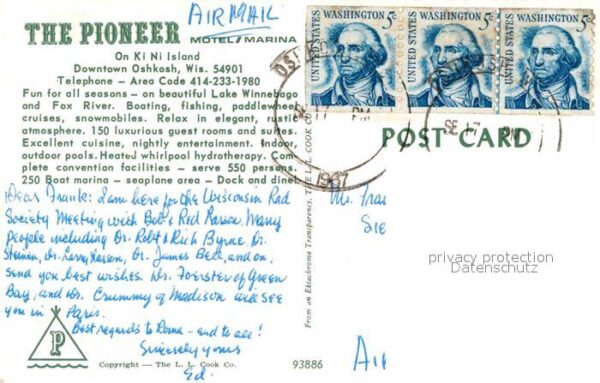 AIR MAIL
THE PIONEER
MOTEL / MARINA
On Ki Ni Island
Downtown Oshkosh, Wis. 54901
Telephone – Area Code 414-233-1980
Fun for all seasons – on beautiful Lake Winnebago
and Fox River. Boating, fishing, paddlewheel
cruises, snowmobiles. Relax in elegant, rustic
atmosphere. 150 luxurious guest rooms and suites.
Excellent cuisine, nightly entertainment. Indoor,
outdoor pools. Heated whirlpool hydrotherapy. Com
plete convention facilities – serve 550 persons.
250 Boat marina – seaplane area – Dock and dine
UNITED STATES
WASHINGTON 5c
UNITED STATES
WASHINGTON 5c
UNITED STATES
WASHINGTON 5c
SE 17 PM
1967
SE 17 PM
POST CARD
Dear Frank: I am here for the Wisconsin Rad
Society Meeting with Bob & Rad. Many
people including Dr. Robt & Rich Byrne, Dr.
Dr. Larry Larson, Dr. James Bell, and on,
send you best wishes. Dr. Foerster of Green
Bay, and Dr. Crummy of Madison will see
you in Paris.
Best regards to Roma – and to all!
Sincerely yours
Ed.
P
Copyright – The L. L. Cook Co.
93886
From an Ektachrome Transparency, THE L. L. COOK CO
Mr. Fra
Sie
Ai
privacy protection
Datenschutz